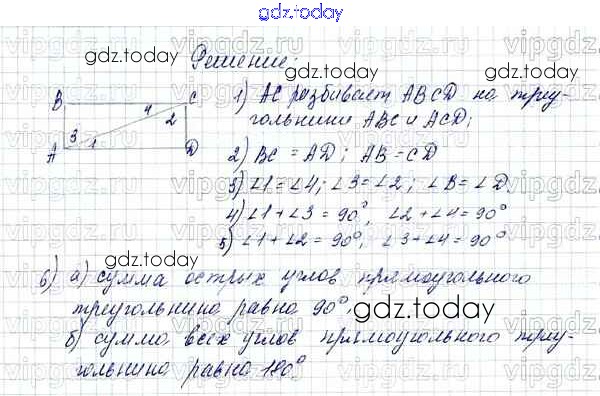 gdz.today
gdz.today
Решение:
gdz.today
B
C
4
2
3
1
A
D
1) AC разбивает ABCD на треу-
гольники ABC и ACD;
2) BC = AD; AB = CD
3) ∠1 = ∠4; ∠3 = ∠2; ∠B = ∠D.
4) ∠1 + ∠3 = 90°, ∠2 + ∠4 = 90°
5) ∠1 + ∠2 = 90°, ∠3 + ∠4 = 90°
gdz.today
gdz.today
6) а) сумма острых углов прямоугольного
треугольника равна 90°.
gdz.today
б) сумма всех углов прямоугольного треу-
гольника равна 180°